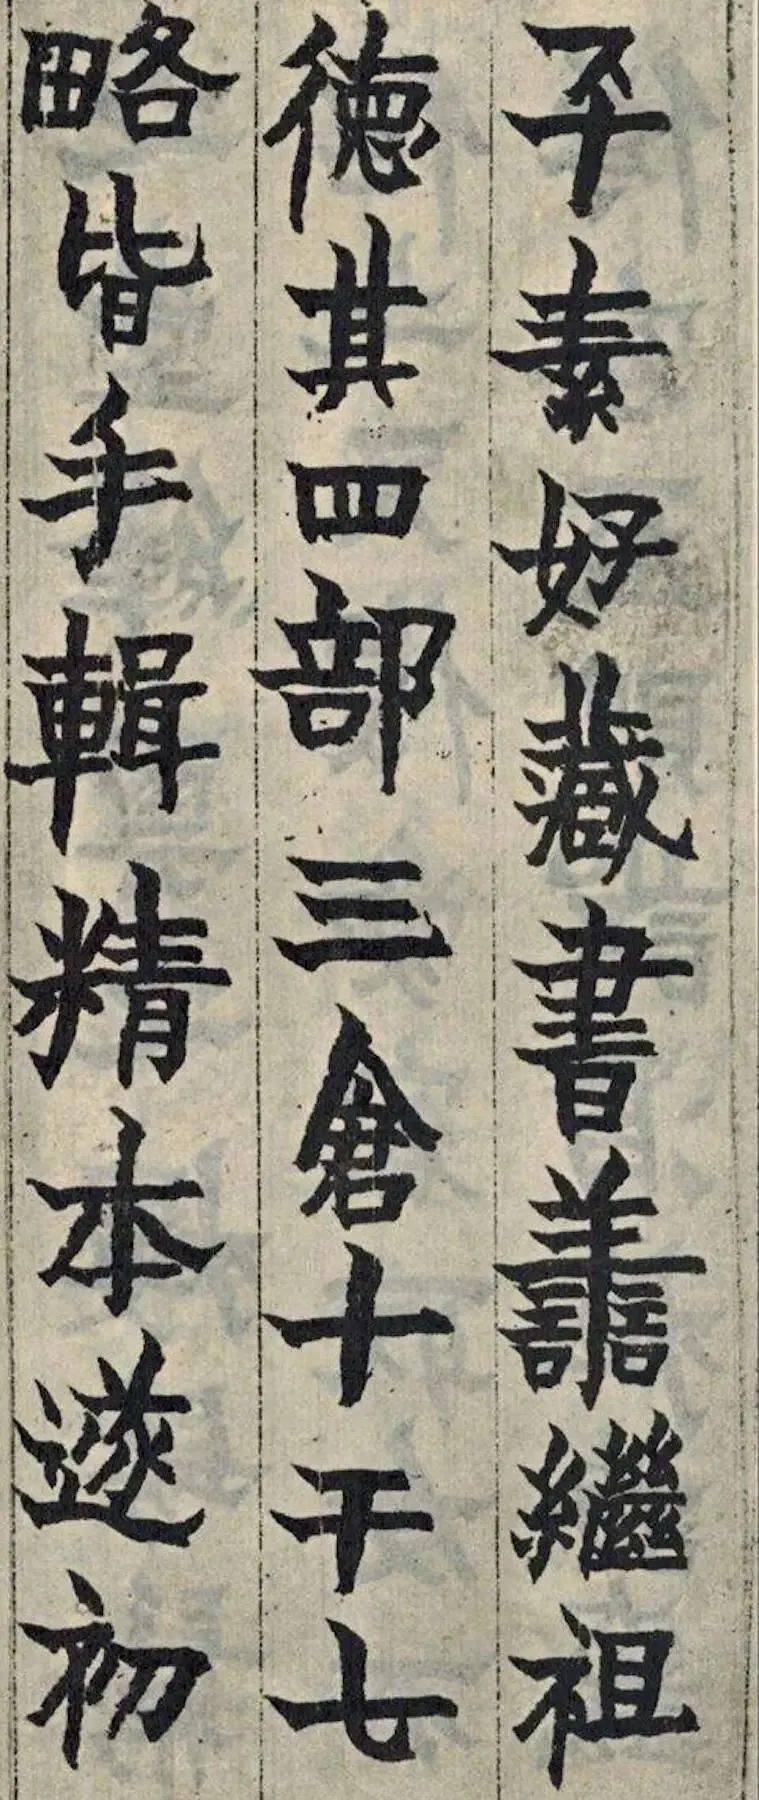 子素好藏書譱繼祖
德其四部三倉十干七
略皆手輯精本遂初